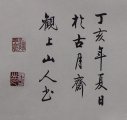 丁亥年夏日
於古月齋
觀上山人書